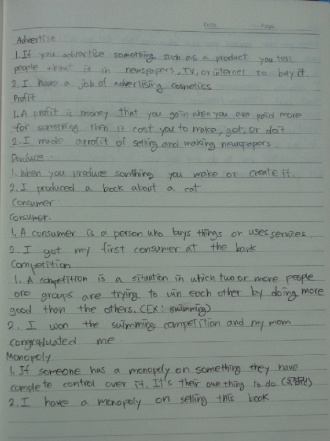 Date Page
Advertise
1. If you advertise something such as a product you tell
people about it in newspapers, TV, or internet to buy it
2. I have a job of advertising cosmetics
Profit
1. A profit is money that you gain when you are paid more
for something then it cost you to make, get, or do it
2. I made a profit of selling and making newspapers
Produce
1. When you produce somthing you make or create it.
2. I produced a book about a cat
Consumer
Consumer
1. A consumer is a person who buys things or uses services
2. I got my first consumer at the bank
Competition
1. A competition is a situation in which two or more people
ore groups are trying to win each other by doing more
good than the others. (EX: swimming)
2. I won the swimming competition and my mom
congraduated me
Monopoly
1. If someone has a monopoly on something they have
complete control over it. It's their own thing to do
2. I have a monopoly on selling this book